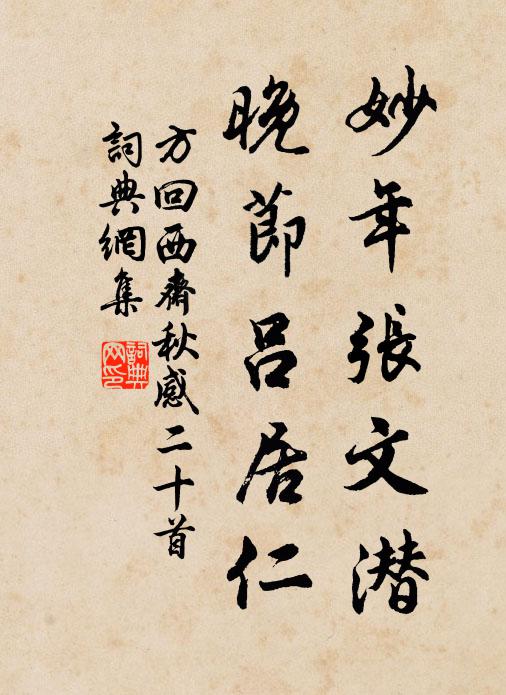 妙年張文潜
晚節呂居仁
方回西齋秋感二十首
詞典網集
詞典网印